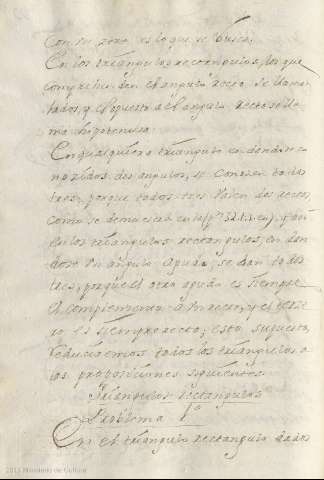 Con su seno, es lo que se busca.
En los triangulos rectangulos, los que
comprehenden el angulo recto se llama
lados, y el opuesto a el angulo recto se lla
ma hipotenusa.
En qualquiera triangulo en donde se co
nozcan dos angulos, se conocen todos
tres, porque todos tres valen dos rectos,
como se demuestra en
en los triangulos rectangulos, en dan
dose un angulo agudo, se dan todos
tres, porque el otro agudo es siempre
complemento a un recto, y el terce
ro es siempre recto; esto supuesto,
reduciremos todos los triangulos a
las proposiciones siguientes.
Triangulos rectangulos
Problema 1º
En el triangulo rectangulo dados
2011 Ministerio de Cultura